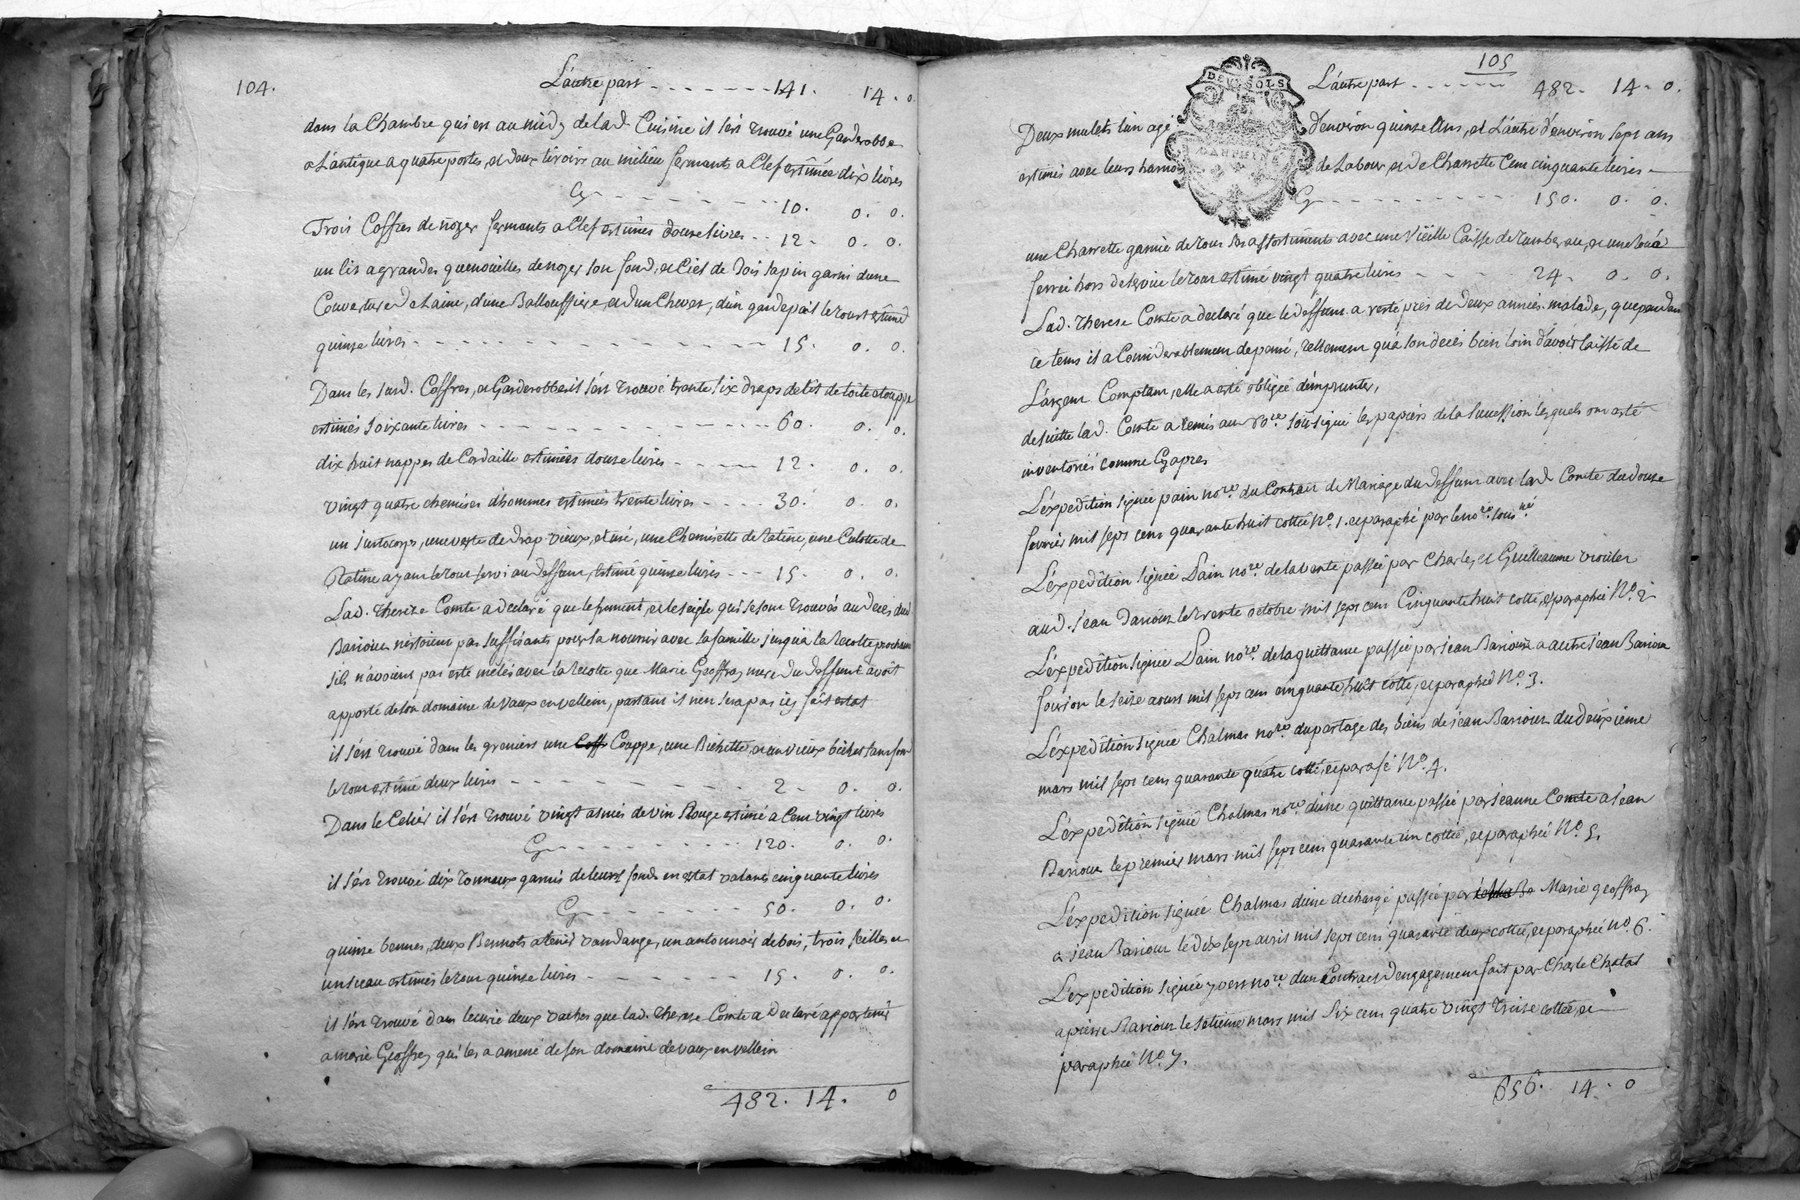 104.
L'autre part - - - - - - - 141. 14. 0
dans la Chambre qui est au midy de lad. Cuisine il s'est trouvé une Garderobbe
a L'antique a quatre portes, et deux tiroirs au milieu fermants a Clef estimée dix livres
Cy - - - - - - - 10. 0. 0.
Trois Coffres de noyer fermants a Clef estimés douse livres - - 12 - 0. 0.
un lit a grandes quenouilles de noyer son fond, et Ciel de bois sapin garni d'une
Couverture de Laine, d'une Balouffiere, et d'un Chevet, d'un gardepaille le tout estimé
quinse livres - - - - - - - - - - - - 15. 0. 0.
Dans les susd. Coffres, et Garderobbe il s'est trouvé trente six draps de lit de toile etouppe
estimés soixante livres - - - - - - - - - - 60. 0. 0.
dix huit nappes de Cordaille estimées douse livres - - - - 12. 0. 0.
vingt quatre chemises d'hommes estimées trente livres - - - - 30. 0. 0.
un justocorps, une veste de drap vieux, et usé, une Chemisette de ratine, une Culotte de
Ratine ayant le tout servi au deffunt, estimé quinse livres - - - 15. 0. 0.
Lad. Therese Comte a declaré que le froment, et le seigle qui se sont trouvés au deces dud.
Bariour n'estoient pas suffisants pour sa nourrir avec sa famille jusqu'a la recolte prochaine
s'ils n'avoient pas esté mélés avec la recolte que Marie Geoffray mere du deffunt avoit
apporté de son domaine de Vaux en vellein, partant il n'en sera pas icy fait estat
il s'est trouvé dans les greniers une Coff Couppe, une Bichette, et un vieux bichet sans fon
le tout estimé deux livres - - - - - - - - - 2 - 0. 0.
Dans le Celier il s'est trouvé vingt asnées de vin Rouge estimé a Cent vingt livres
Cy - - - - - - - - 120. 0. 0.
il s'est trouvé dix tonneaux garnis de leurs fonds en estat valants cinquante livres
Cy - - - - - - - 50. 0. 0.
quinse bennes, deux Bennots a tenir vandange, un antonnoir de bois, trois seilles et
un seau estimés le tout quinse livres - - - - - - - 15. 0. 0.
il s'est trouvé dans l'ecurie deux vaches que lad. Therese Comte a declaré appartenir
a marie Geoffray qu'il les a amené de son domaine de vaux en vellein
482. 14. 0
105
L'autre part - - - - - 482. 14. 0.
DEUX SOLS
DAUPHINÉ
Deux mulets l'un agé d'environ quinse Ans, et L'autre d'environ sept ans
estimés avec leurs harnois de Labour, et de Charrette Cent cinquante livres -
Cy - - - - - - - - - 150. 0. 0.
une Charrette garnie de tous ses assortiments avec une Vieille Caisse de tumbereau, et une roue
ferrée hors de servie le tout estimé vingt quatre livres - - - - 24. 0. 0.
Lad. Therese Comte a declaré que le deffunt a resté près de deux années malade, que pendant
ce tems il a Considerablement depensé, tellement qu'a son deces bien loin d'avoir laissé de
L'argent Comptant, elle a esté obligée d'emprunter,
de suitte lad. Comte a remis au no.re soussigné les papiers de la succession lesquels ont esté
inventoriés comme Cy apres
L'éxpedition signée pain no.re du Contrait de Mariage du deffunt avec lad. Comte du douse
fevrier mil sept cens quarante huit cottée N.o 1. et paraphé par le no.re sous né
L'expedition signée Dain no.re de la vente passée par Charles et Guilleaume vioulet
aud. Jean Bariour le trente octobre mil sept cens Cinquante huit cotté, et paraphée N.o 2.
L'éxpedition signée Dain no.re de la quittance passée par Jean Bariour a autre Jean Bariour
foirion le seise aoust mil sept cens cinquante huit cotté, et paraphée N.o 3.
L'éxpedition signée Chalmas no.re du partage des biens de Jean Bariour du deuxieme
mars mil sept cens quarante quatre cotté, et parafé N.o 4.
L'éxpedition signée Chalmas no.re d'une quittance passée par Jeanne Comte a Jean
Bariour le premier mars mil sept cens quarante un cottée, et paraphée N.o 5.
L'éxpedition signée Chalmas d'une decharge passée par Marie geoffray
a Jean Bariour le dix sept avril mil sept cens quarante deux cottée, et paraphée N.o 6.
L'expedition signée yvers no.re d'un Contract d'engagement fait par Charle Chatal
a pierre Bariour le setieme mars mil Six cens quatre vingt treise cottée, et
paraphée N.o 7.
656. 14. 0